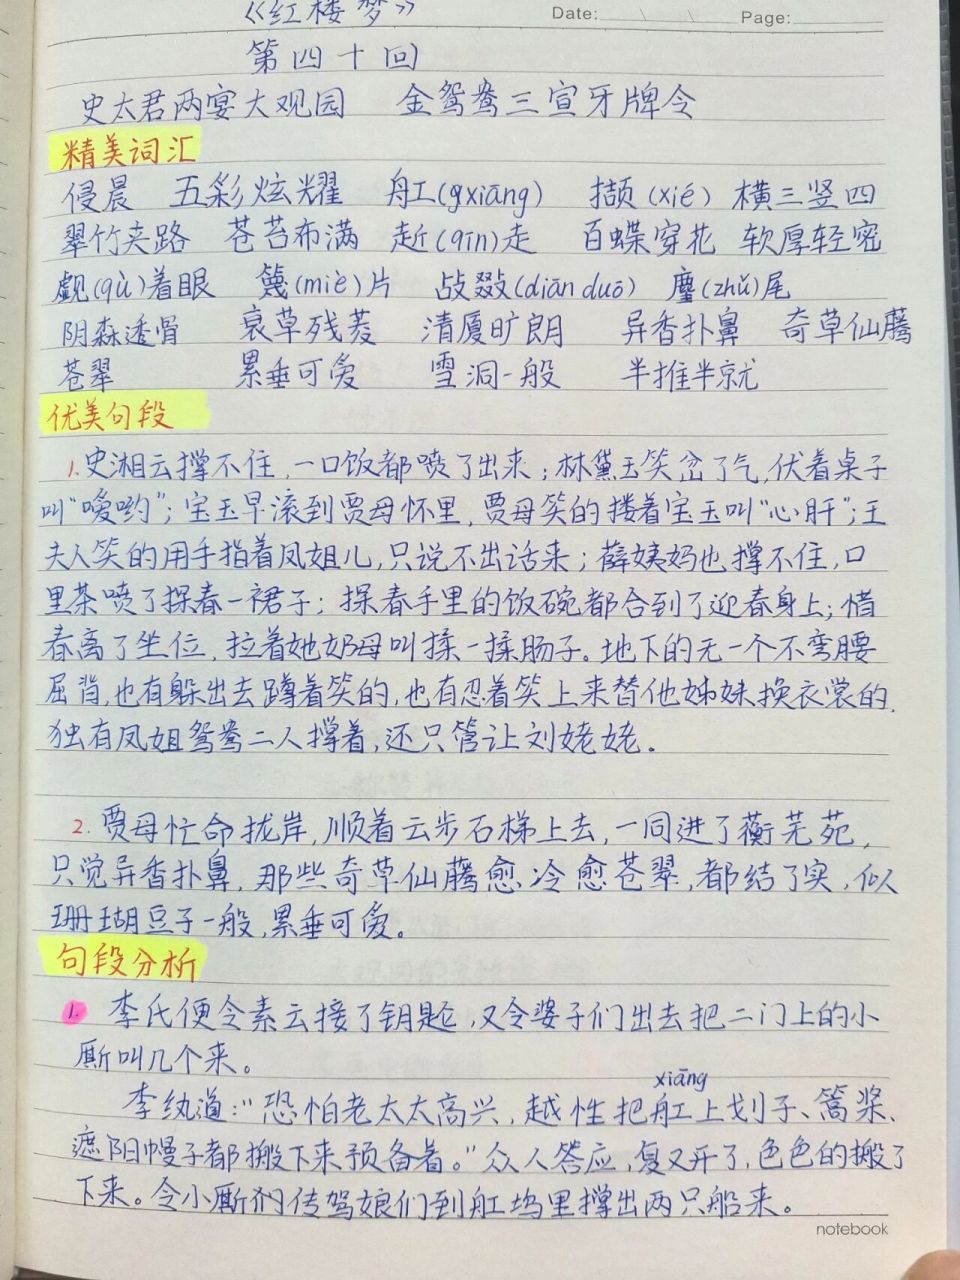 《红楼梦》
Date: Page:
第四十回
史太君两宴大观园 金鸳鸯三宣牙牌令
精美词汇
侵晨 五彩炫耀 舡(gxiāng) 撷(xié) 横三竖四
翠竹夹路 苍苔布满 赾(qīn)走 百蝶穿花 软厚轻密
觑(qù)着眼 篾(miè)片 战敠(diān duō) 麈(zhǔ)尾
阴森透骨 衰草残菱 清厦旷朗 异香扑鼻 奇草仙藤
苍翠 累垂可爱 雪洞一般 半推半就
优美句段
1.史湘云撑不住,一口饭都喷了出来;林黛玉笑岔了气,伏着桌子
叫"嗳哟";宝玉早滚到贾母怀里,贾母笑的搂着宝玉叫"心肝";王
夫人笑的用手指着凤姐儿,只说不出话来;薛姨妈也撑不住,口
里茶喷了探春一裙子;探春手里的饭碗都合到了迎春身上;惜
春离了坐位,拉着她奶母叫揉一揉肠子。地下的无一个不弯腰
屈背,也有躲出去蹲着笑的,也有忍着笑上来替他姊妹换衣裳的,
独有凤姐鸳鸯二人撑着,还只管让刘姥姥。
2.贾母忙命拢岸,顺着云步石梯上去,一同进了蘅芜苑,
只觉异香扑鼻,那些奇草仙藤愈冷愈苍翠,都结了实,似
珊瑚豆子一般,累垂可爱。
句段分析
1. 李氏便令素云接了钥匙,又令婆子们出去把二门上的小
厮叫几个来。
xiāng
李纨道:"恐怕老太太高兴,越性把舡上划子、篙桨、
遮阳幔子都搬下来预备着。"众人答应,复又开了,色色的搬了
下来。令小厮们传驾娘们到舡坞里撑出两只船来。
notebook